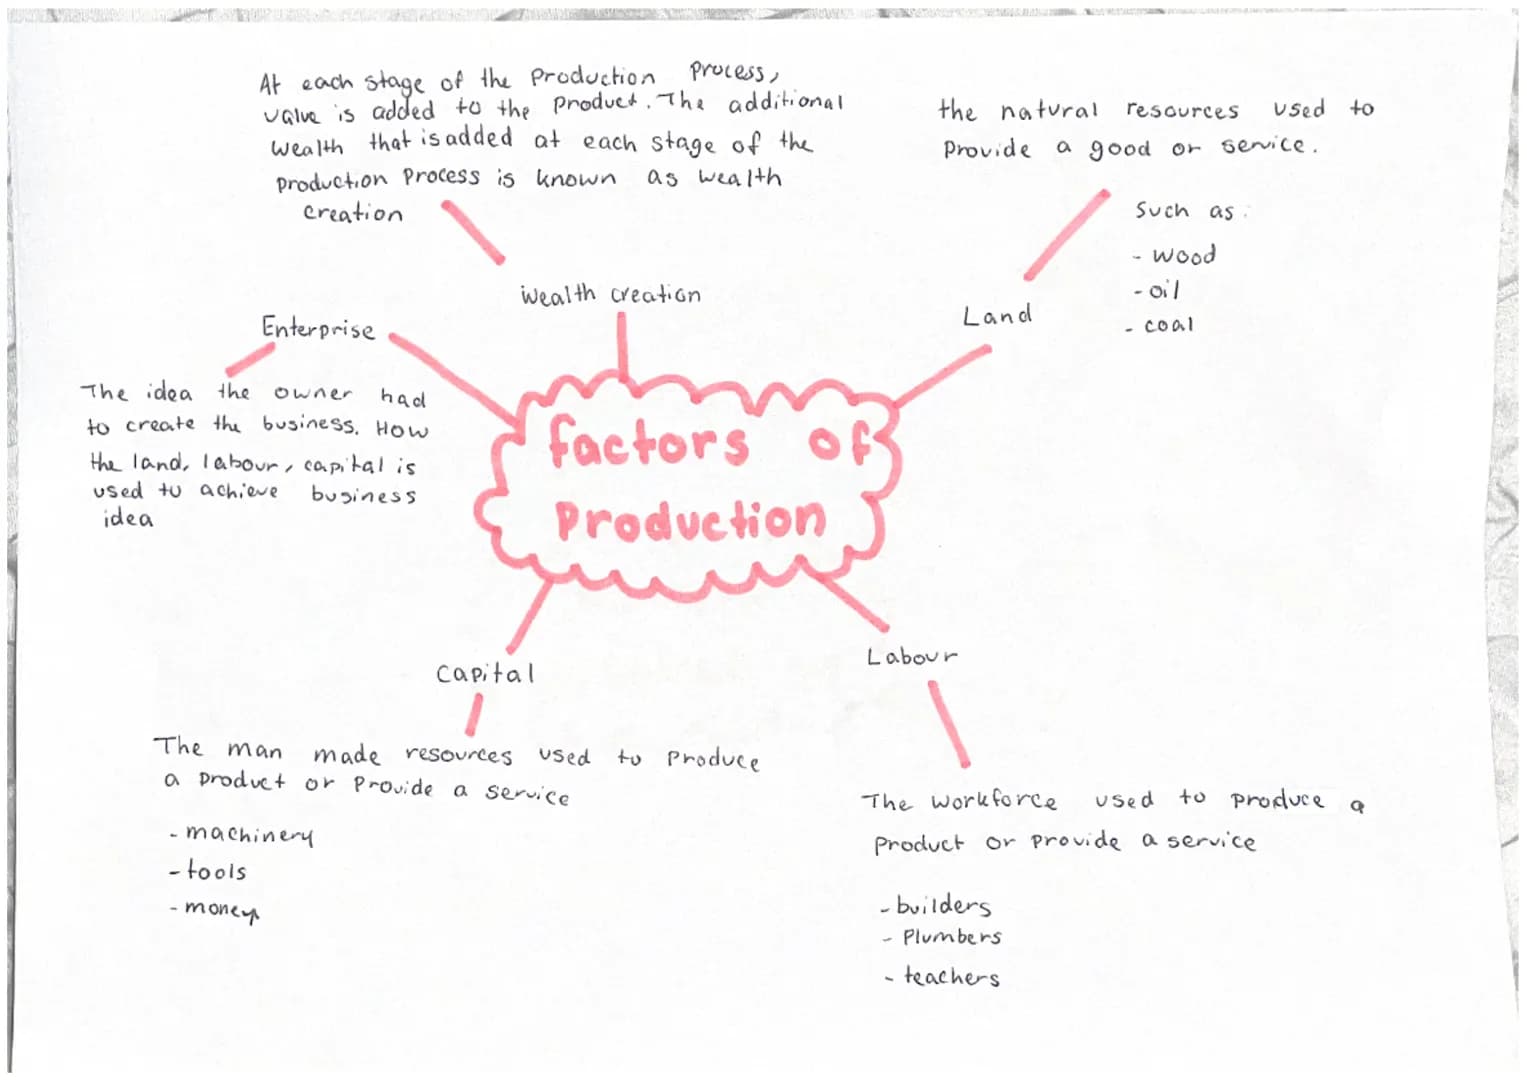 At each stage of the Production Process,
value is added to the Product. The additional
Wealth that is added at each stage of the
Production Process is known as wealth
creation
Wealth creation
the natural resources used to
Provide a good or service.
Such as:
- wood
- oil
- coal
Land
Enterprise
The idea the owner had
to create the business. How
the land, labour, capital is
used to achieve business
idea
factors of
Production
Capital
The man made resources used to Produce
a Product or Provide a service
- machinery
- tools
- money
Labour
The workforce used to produce a
Product or provide a service
- builders
- Plumbers
- teachers